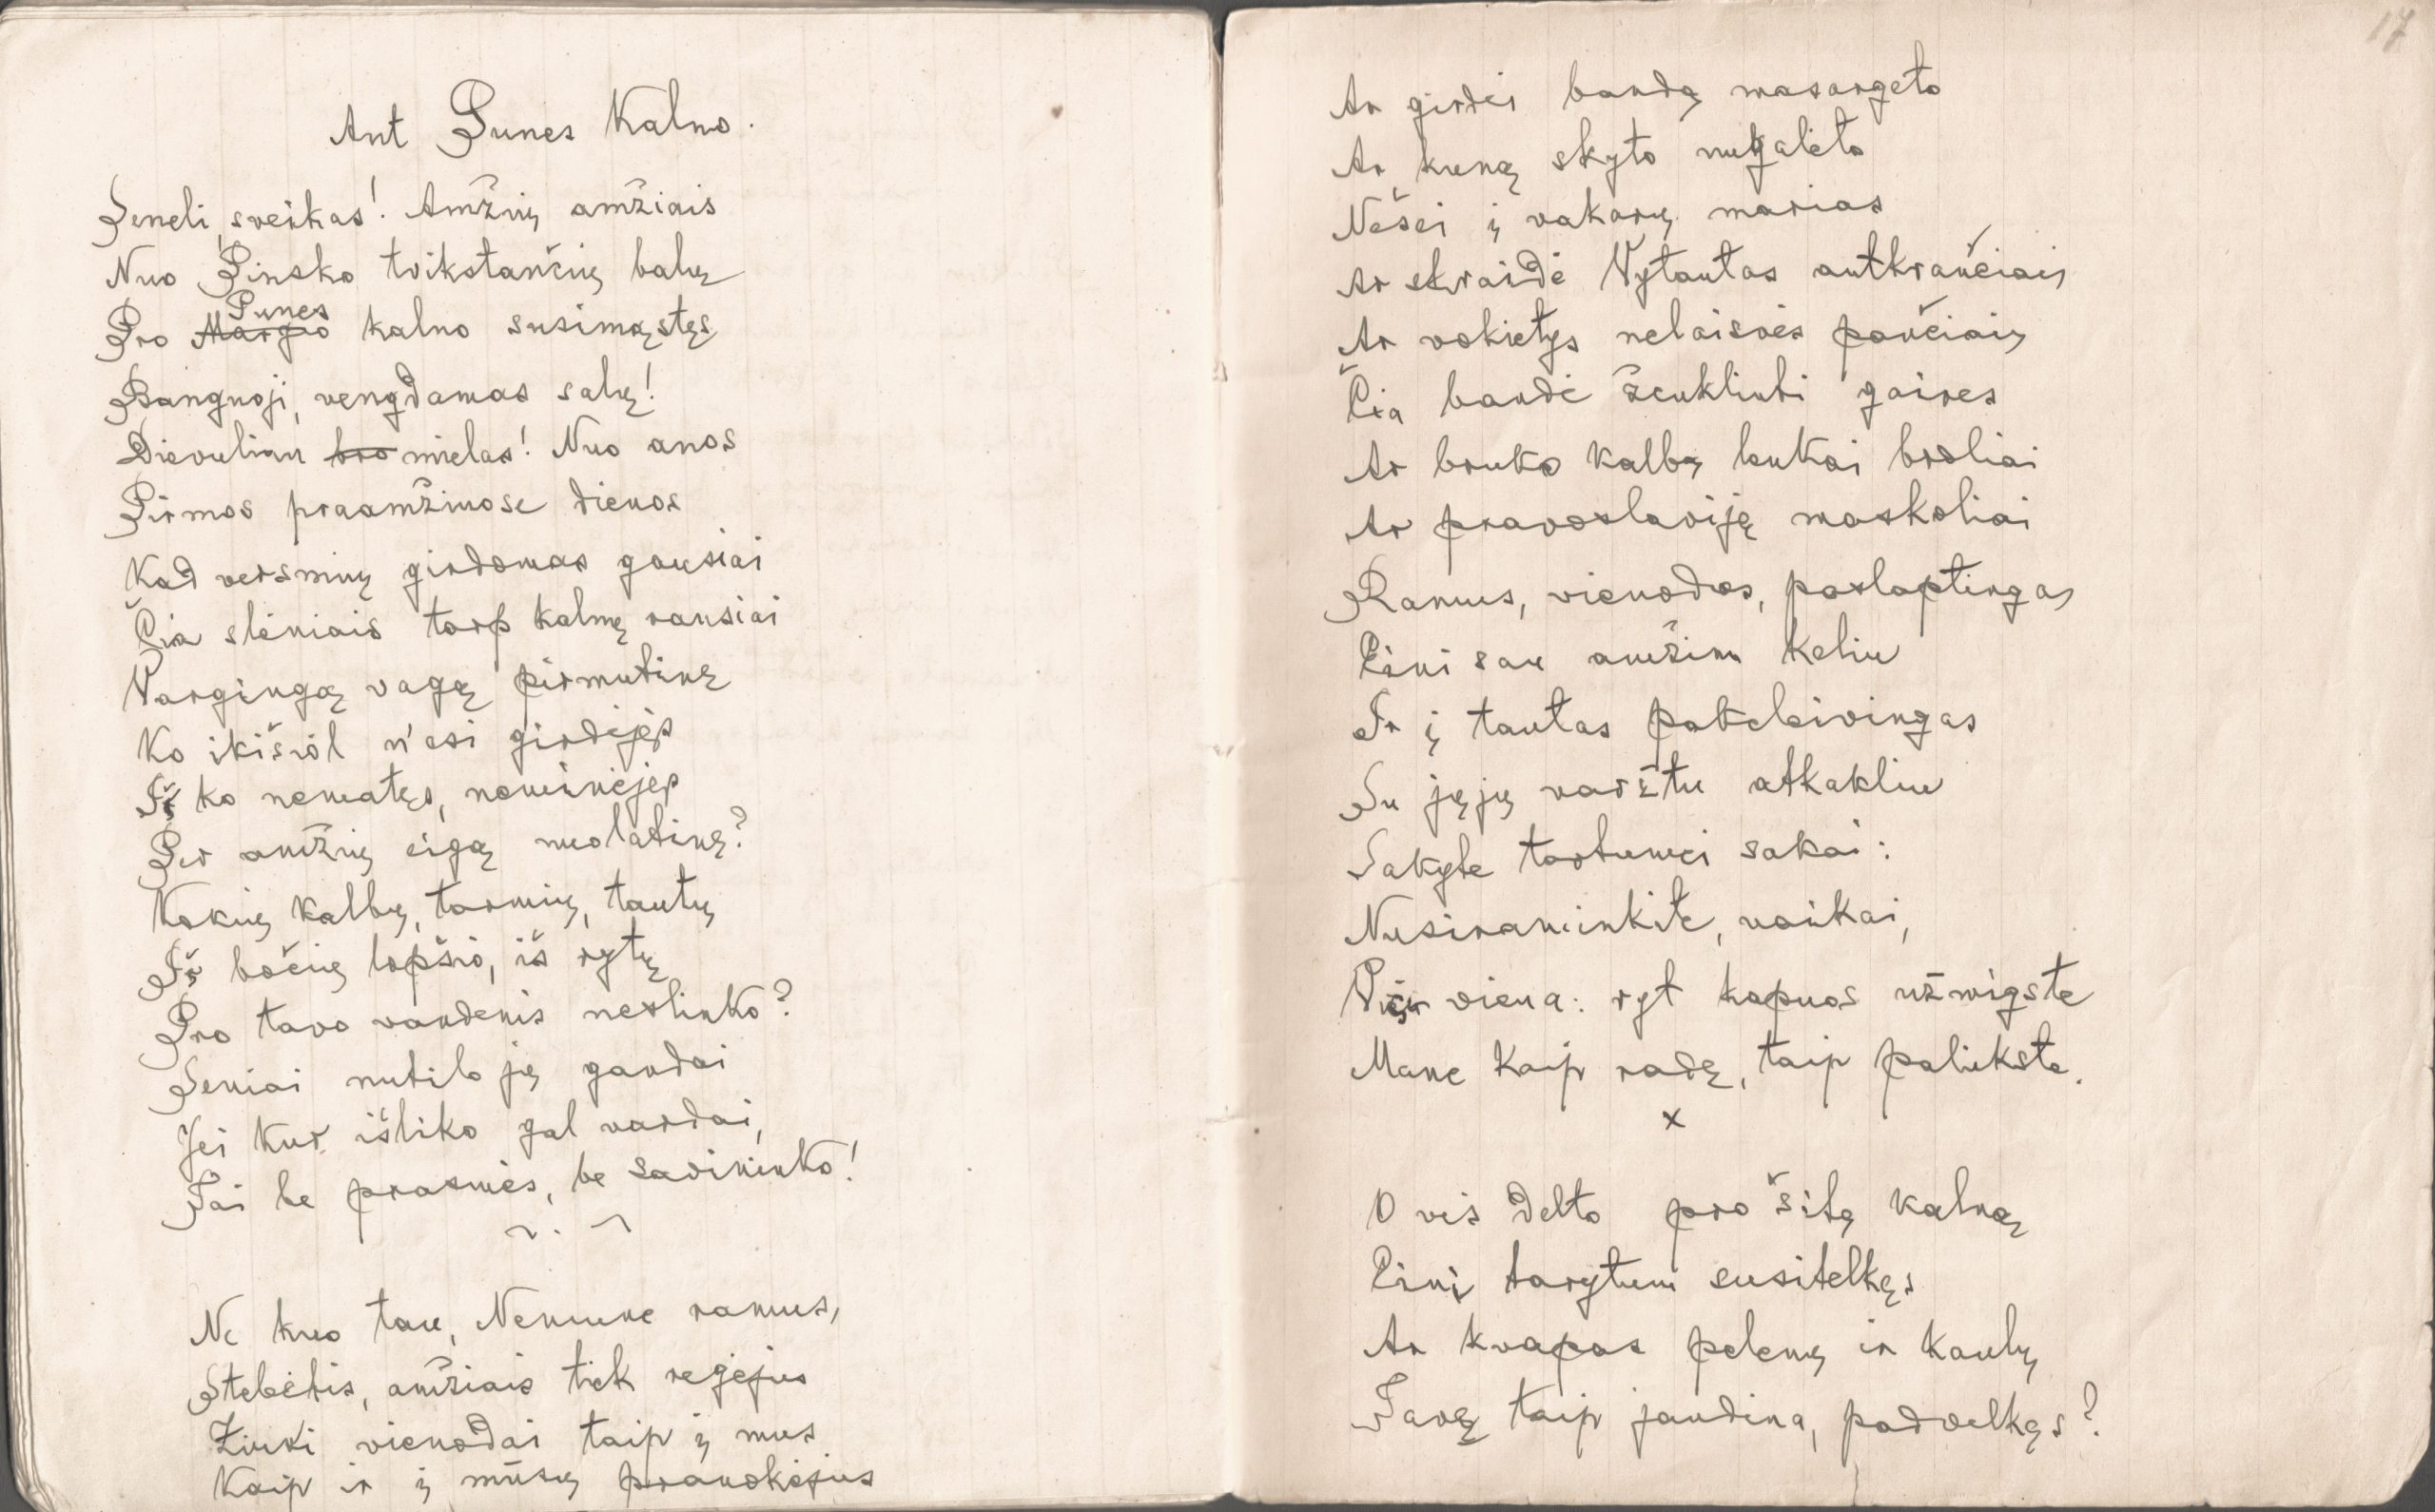 Ant Punes Kalno.
Seneli, sveikas! Amžių amžiais
Nuo Pinsko tvikstančių balų
Pro Margio Punes kalno susimąstęs
Banguoji, vengdamas salų!
Dievuliau bro mielas! Nuo anos
Pirmos praamžinose dienos
Kad versmių girdomas gausiai
Čia slėniais tarp kalnų rausiai
Vargingą vagą pirmutinę
Ko ikišiol n'esi girdėjęs
Iš ko nematęs, neminėjęs
Per amžių eigą nuolatinę?
Kokių kalbų, tarmių, tautų
Iš bočių lopšio, iš rytų
Pro tavo vandenis neslinko?
Seniai nutilo jų gandai
Jei kur išliko gal vardai,
Tai be prasmės, be savininko!
Ne kuo tau, Nemune ramus,
Stebėtis, amžiais tiek regėjus
Žiuri vienodai taip į mus
Kaip ir į mūsų pranokėjus
17
Ar girdei bandą masargeto
Ar kuną skyto nugalėto
Nešei į vakarų marias
Ar skraidė Vytautas antkrančiais
Ar vokietys nelaisvės pančiais
Čia bandė ženklinti gaires
Ar bruko kalbą lenkai broliai
Ar pravoslaviją maskoliai
Ramus, vienodas, paslaptingas
Eini sau amžinu keliu
Ir į tautas pakeleivingas
Su jųjų varžtu atkakliu
Sakyte tartumei sakai:
Nusiraminkite, vaikai,
viena: ryt kapuos užmigste
Mane kaip radę, taip paliekste.
x
O vis delto pro šitą kalną
Eini tarytum susitelkęs
Ar kvapas pelenų ir kaulų
Tavę taip jaudina, padvelkęs?